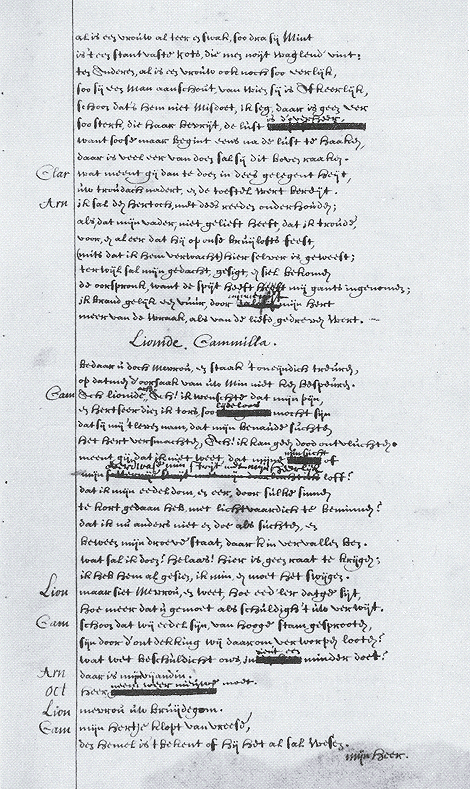 al is een vrouw al teer en swak, soo dra sij Mint
is 't een stantvaste Rots, die men noijt waglend vint:
ten anderen, al is een vrouw ook noch soo eerlijk,
soo sij een Man aanschout, van wien sij is
schoon dat's hem niet Misdoet, ik seg, daar is geen eer
soo sterk, die haar bevrijt, de lust
want soose maar begint eens na de lust te haaken,
daar is veel eer van doen sal sij dit boven raaken.
Clar wat meent gij dan te doen in dees gelegentheijt,
uw troudach nadert, en de toestel wert bereijt.
Arn ik sal den hertoch, met dees reeden onderhouden;
als, dat mijn vader, niet gelieft heeft, dat ik troude,
voor, en al eer dat hij op onse bruijlofts feest,
(mits dat ik hem verwacht) hier selver is geweest;
terwijl sal mijn gedacht, gesigt, en siel bekomen
de oorspronk, want de spijt heeft mij gants ingenomen;
ik brand gelijk een vuur, door mijn hert
meer van de wraak, als van de liefd, gedreven wert.
Lionide. Cammilla.
bedaar u doch Mevrou, en staak 't oneijndich treuren,
op dat men d'oorsaak van uw Min niet kan bespeuren.
Cam Ach Lionide, Ach! ik wenschte dat mijn pijn,
en hertseer die ik tors, soo mocht sijn
dat sij mij 't leven nam, dat mijn benaude suchten
het hert versmachten, Ach! ik kan geen dood ontvluchten.
meent gij dat ik niet weet, dat mijne of
mijn loff?
dat ik mijn eedeldom, en eer, door sulke sinnen
te kort gedaan heb, met lichtvaardich te beminnen?
dat ik nu anders niet en doe als suchten, en
beween mijn droeve staat, daar k'in vervallen ben.
wat sal ik doen? helaas! hier is geen raat te krijgen;
ik heb hem al gesien, ik min, en moet het swijgen.
Lion maar siet Mevrou, en weet, hoe eedler dat ge sijt,
hoe meer dat u gemoet als schuldich 't uw verwijt.
Cam schoon dat wij eedel sijn, van hooge stam gesprooten,
sijn door d'ontdekking wij daarom verworpen looten?
wat wet beschuldicht ons, in minder doet?
Arn daar is mijn vijandin.
Oct heer, moet.
Lion mevrou uw bruijdegom.
Cam mijn hertje klopt van vreesd,
den hemel is 't bekent of hij het al sal wesen.
mijn heer.